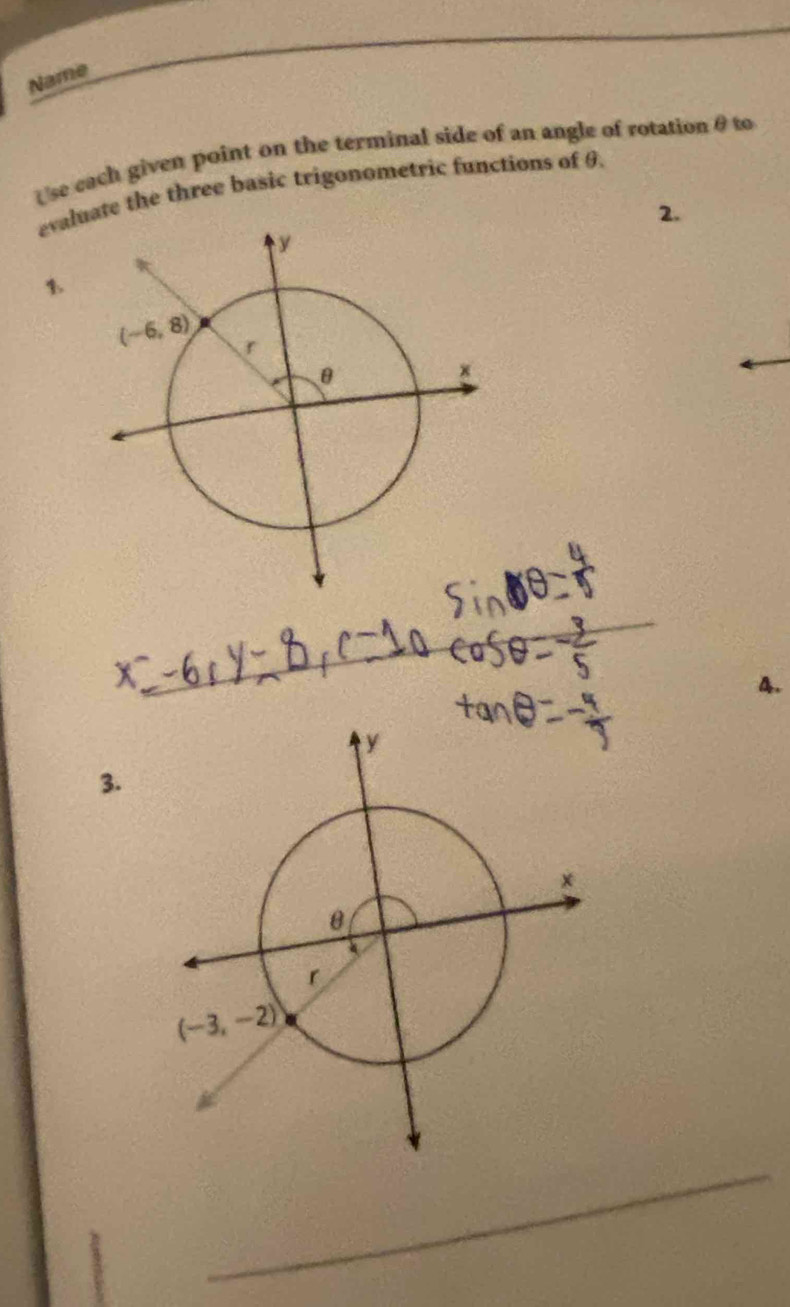 Name
Use each given point on the terminal side of an angle of rotation θ to
evaluate the three basic trigonometric functions of θ.
1.
2.
y
(−6, 8)
r
θ
x
sin θ = 4/5
x=-6, y=8, r=10 cosθ = -3/5
tanθ = -4/3
3.
4.
y
x
θ
r
(−3, −2)